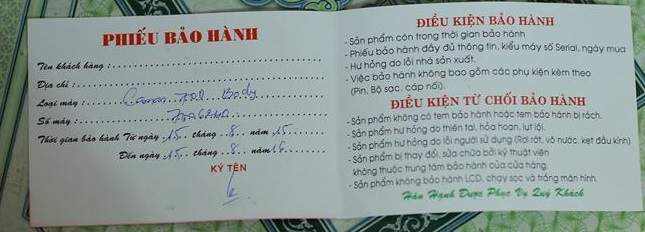 PHIẾU BẢO HÀNH
Tên khách hàng :
Địa chỉ :
Loại máy : Canon 70D Body
Số máy :
Thời gian bảo hành Từ ngày 15 tháng 8 năm 15
Đến ngày 15 tháng 8 năm 16
KÝ TÊN
ĐIỀU KIỆN BẢO HÀNH
- Sản phẩm còn trong thời gian bảo hành
- Phiếu bảo hành đầy đủ thông tin, kiểu máy số Serial, ngày mua
- Hư hỏng do lỗi nhà sản xuất.
- Việc bảo hành không bao gồm các phụ kiện kèm theo
(Pin, Bộ sạc, cáp nối).
ĐIỀU KIỆN TỪ CHỐI BẢO HÀNH
- Sản phẩm không có tem bảo hành hoặc tem bảo hành bị rách.
- Sản phẩm hư hỏng do thiên tai, hỏa hoạn, lụt lội.
- Sản phẩm hư hỏng do lỗi người sử dụng (Rơi rớt, vô nước, kẹt đầu kính)
- Sản phẩm bị thay đổi, sửa chữa bởi kỹ thuật viên
không thuộc trung tâm bảo hành của cửa hàng.
- Sản phẩm không bảo hành LCD, chạy sọc và trắng màn hình.
Hân Hạnh Được Phục Vụ Quý Khách